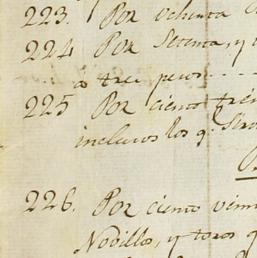 223. Por ochenta
224 Por Setenta, y
a tres pesos
225 Por ciento tréi
incluсos los q.
226. Por ciento vein
Novillos, y toros q